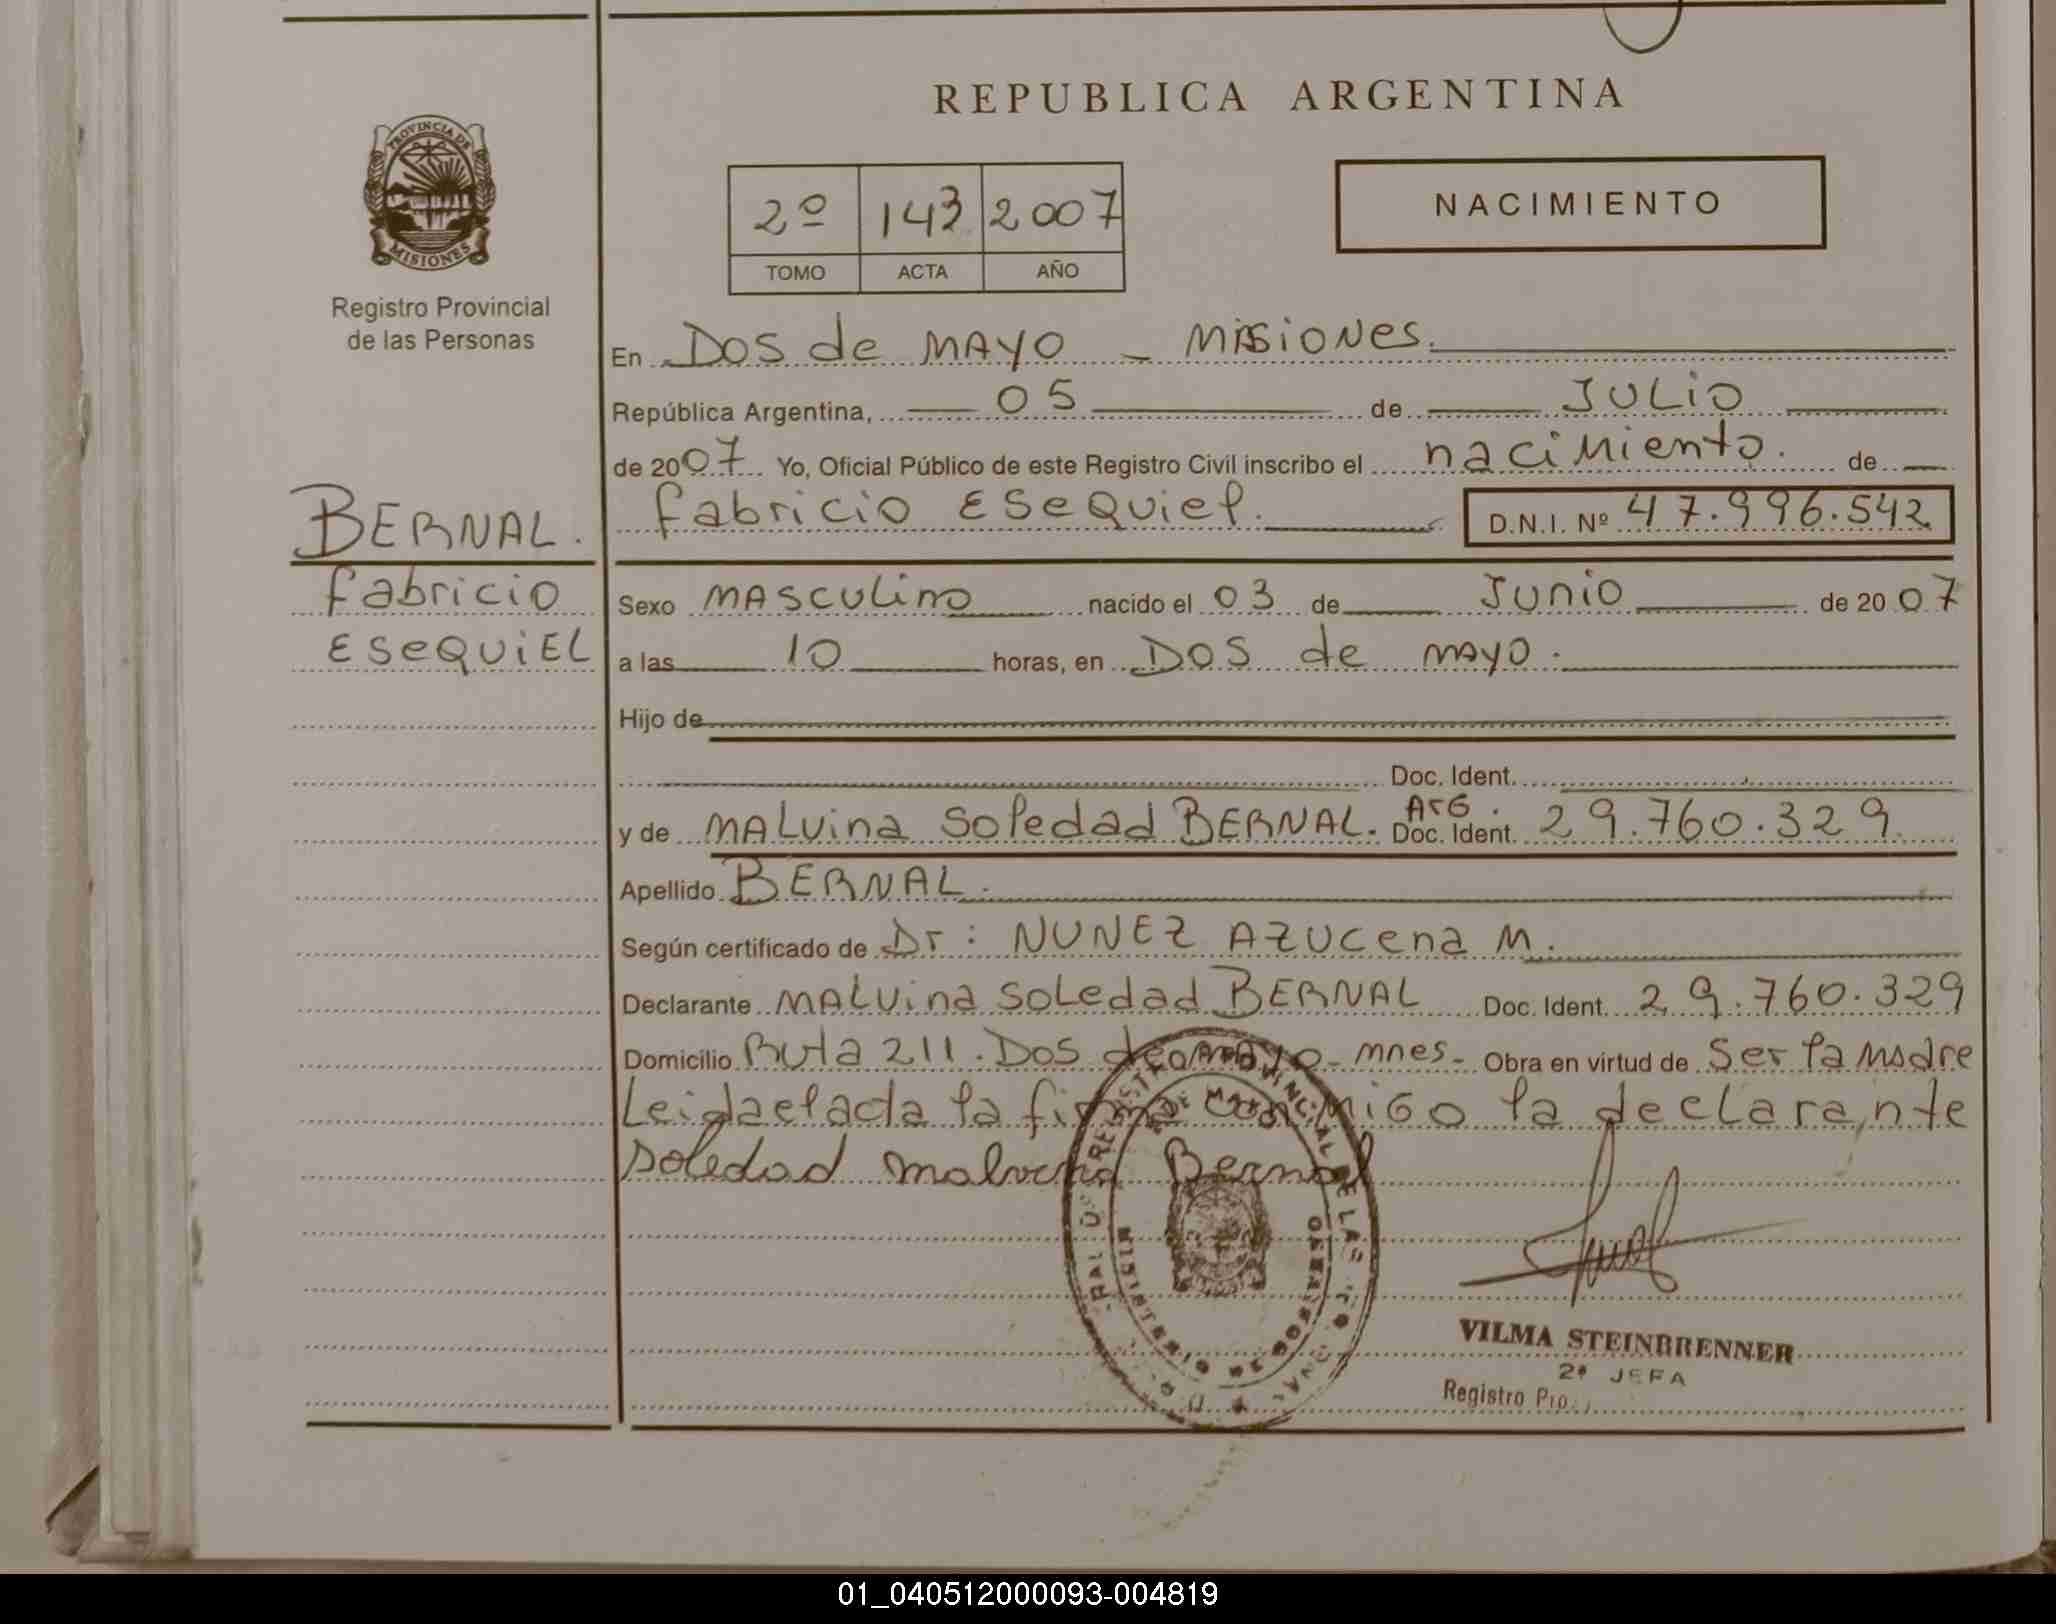 REPUBLICA ARGENTINA
PROVINCIA DE
MISIONES
Registro Provincial
de las Personas
2º 143 2007
TOMO ACTA AÑO
NACIMIENTO
En Dos de MAYO - Misiones.
República Argentina, 05 de JULio
de 2007 Yo, Oficial Público de este Registro Civil inscribo el naciMiento. de
Fabricio ESeQuiel. D.N.I. Nº 47.996.542
BERNAL.
Fabricio
ESeQUiEL
Sexo MASCULino nacido el 03 de Junio de 2007
a las 10 horas, en DOS de MAYO.
Hijo de
Doc. Ident.
y de MALvina Soledad BERNAL. Doc. Ident. ArG. 29.760.329.
Apellido BERNAL.
Según certificado de Dr: NUNEZ AZUCena M.
Declarante MALvina SoLedad BERNAL Doc. Ident. 29.760.329
Domicilio Ruta 211. Dos de mayo - mnes - Obra en virtud de Ser la Madre
Leida el acta la firma conmiGo la decLarante
Soledad Malvina Bernal
VILMA STEINBRENNER
2ª JEFA
Registro Pro.
01_040512000093-004819